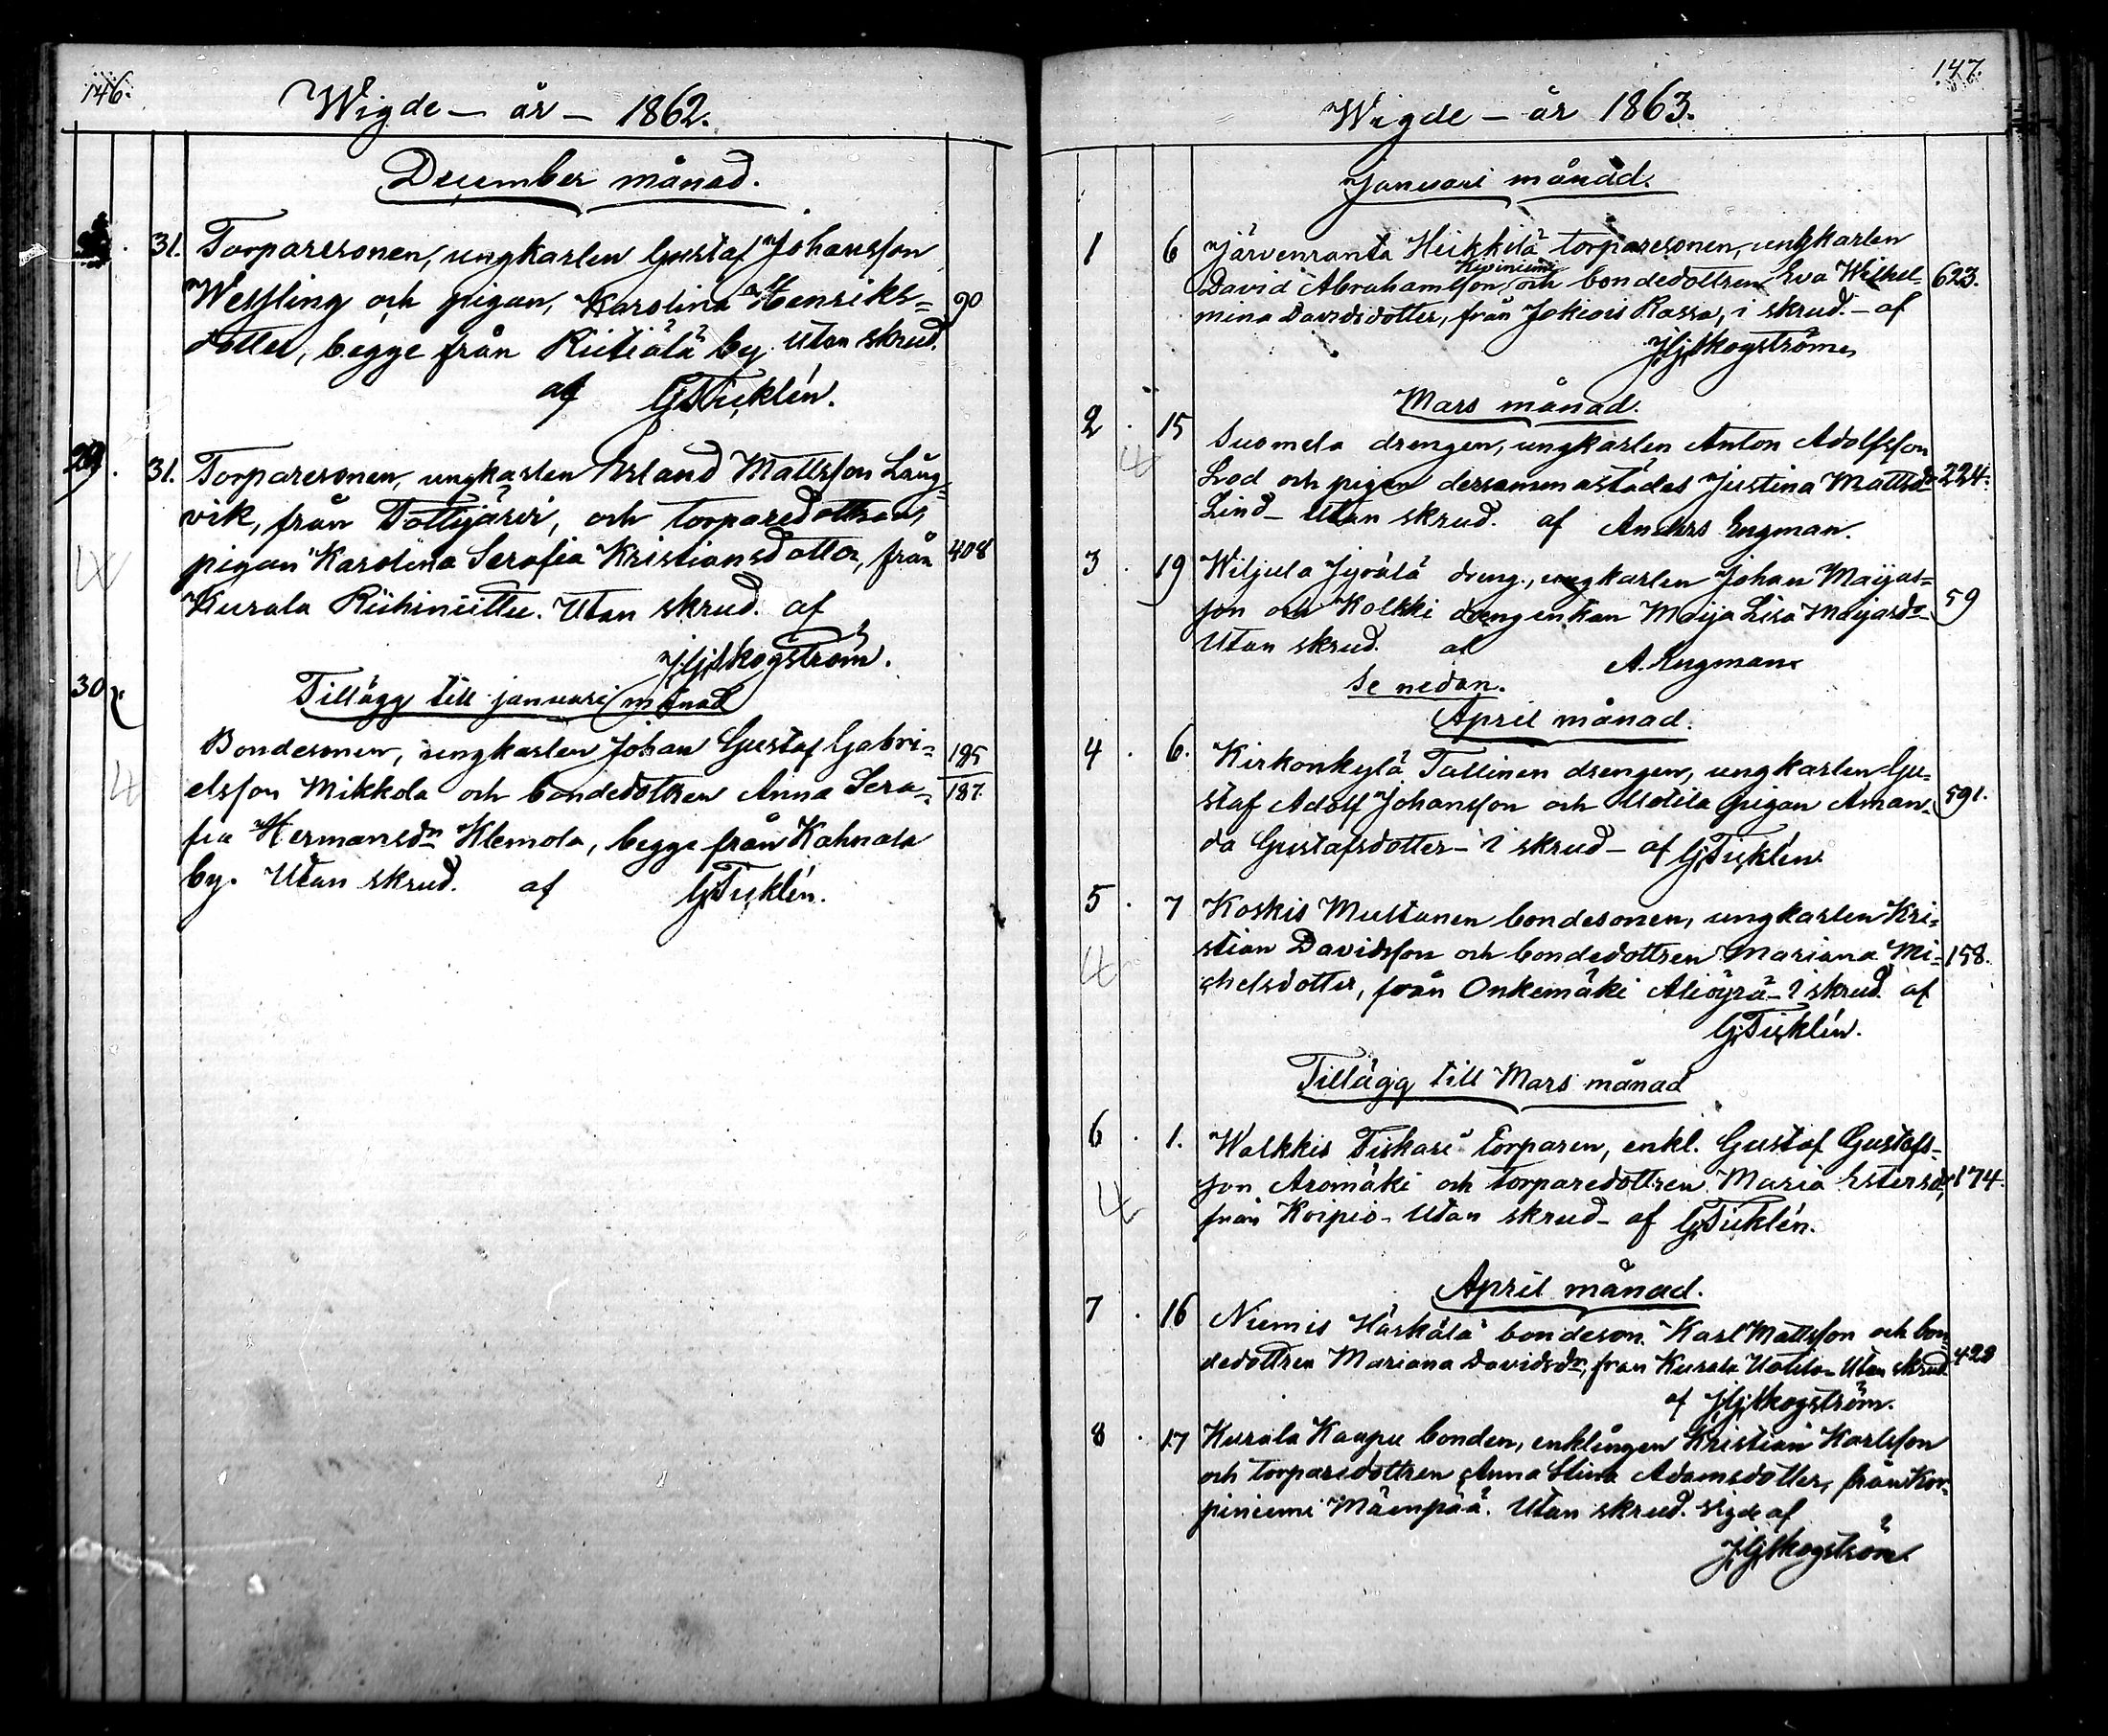 146.
Wigde - år - 1862.
December månad.
31. Torparesonen, ungkarlen Gustaf Johansson
Wessling och pigan, Karolina Henriks= 90
dotter, begge från Riitiälä by. Utan skrud.
af GTicklén.
29. 31. Torparesonen, ungkarlen Erland Mattsson Lång=
vik, från Tottijärvi, och torparedottren,
pigan Karolina Serafia Kristiansdotter, från 408
Kurala Riihiniittu. Utan skrud. af
JGSkogström.
30
Tillägg till januari månad
Bondesonen, ungkarlen Johan Gustaf Gabri= 185
elsson Mikkola och bondedottren Anna Sera= 187.
fia Hermansdr Klemola, begge från Kahnala
by. Utan skrud. af GTicklén.
147.
Wigde - år 1863.
Januari månad.
1 6 Järvenranta Heikkilä torparesonen, ungkarlen
Kiviniemi
David Abrahamsson och bondedottren Eva Wilhel= 623.
mina Davidsdotter, från Jokiois Rassa, i skrud. - af
JGSkogström
Mars månad.
2 . 15 Suomela drengen, ungkarlen Anton Adolfsson
Lod och pigan dersammastädes Justina Mattsdr 224.
Lind - Utan skrud. af Anders Engman.
3 . 19 Wiljula Jyrälä dreng., ungkarlen Johan Maijas=
son och Kolkki drengenkan Maija Lisa Maijasdr 59
Utan skrud. af A. Engman
Se nedan.
April månad.
4 . 6. Kirkonkylä Tallinen drengen, ungkarlen Gu=
staf Adolf Johansson och Uotila pigan Aman= 591.
da Gustafsdotter - i skrud - af GTicklén.
5 . 7 Koskis Mustanen bondesonen, ungkarlen Kri=
stian Davidsson och bondedottren Mariana Mi= 158.
chelsdotter, från Onkemäki Aliöyrä - i skrud. af
GTicklén.
Tillägg till Mars månad
6 . 1. Walkkis Tiskari torparen, enkl. Gustaf Gustafs=
son Aromäki och torparedottren Maria Estersdr, 174.
från Koipio - Utan skrud - af GTicklén.
April månad.
7 . 16 Niemis Härkälä bondeson. Karl Mattsson och bon
dedottren Mariana Davidsdr, från Kurala Uotila - Utan skrud. 428
af JGSkogström.
8 . 17 Kurala Kaapu bonden, enklingen Kristian Karlsson
och torparedottren Anna Stina Adamsdotter, från Kor=
piniemi Mäenpää. Utan skrud. vigde af
JGSkogström.